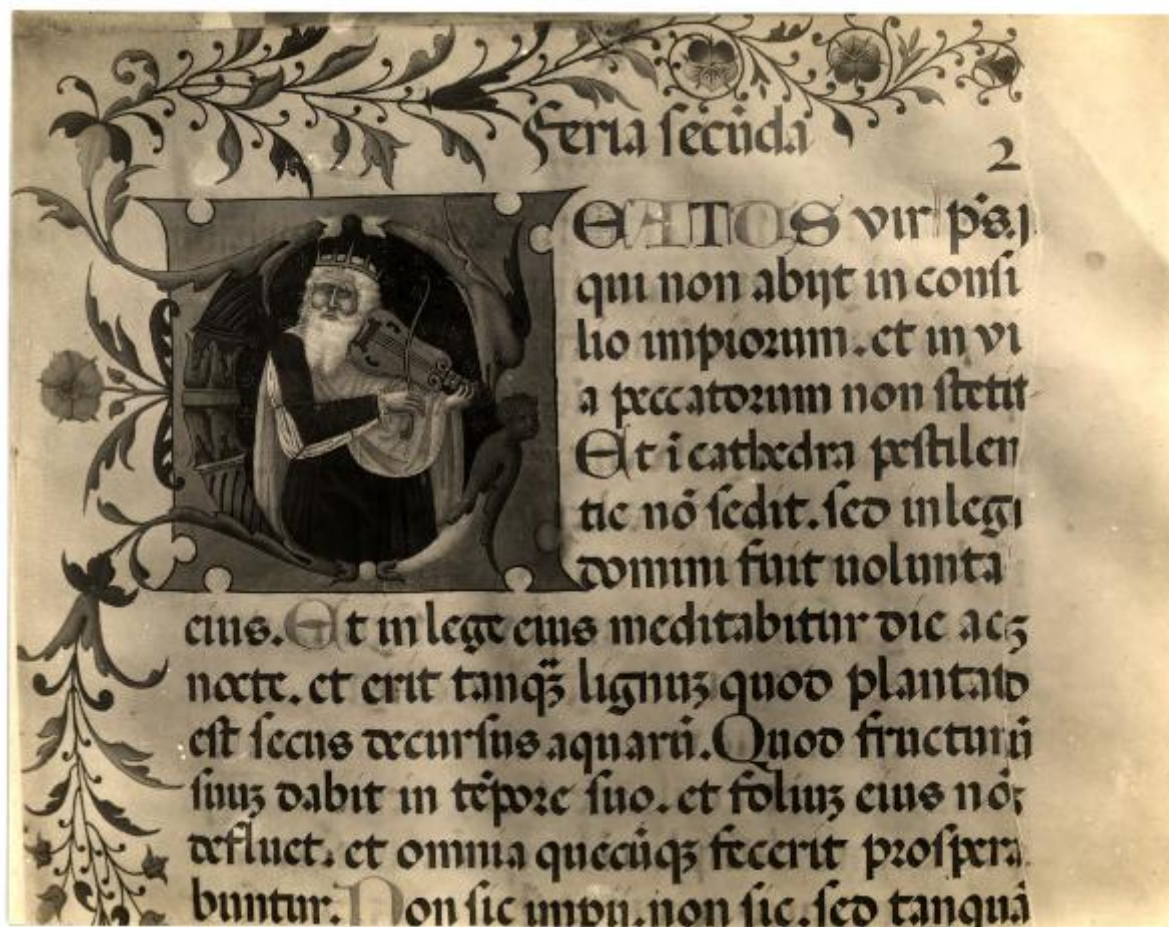 Feria secūda
2
EATOS vir p̄s. j
qui non abijt in consi
lio impiorum. et in vi
a peccatorum non stetit
Et ī cathedra pestilen
tie nō sedit. sed in legi
domini fuit uolunta
eius. Et in lege eius meditabitur die acꝫ
nocte. et erit tanqꝫ lignuꝫ quod plantatō
est secus decursus aquarū. Quod fructum
suuꝫ dabit in tēpore suo. et foliuꝫ eius nō
defluet. et omnia quecūqꝫ fecerit prospera
buntur. Non sic impij. non sic. sed tanquā